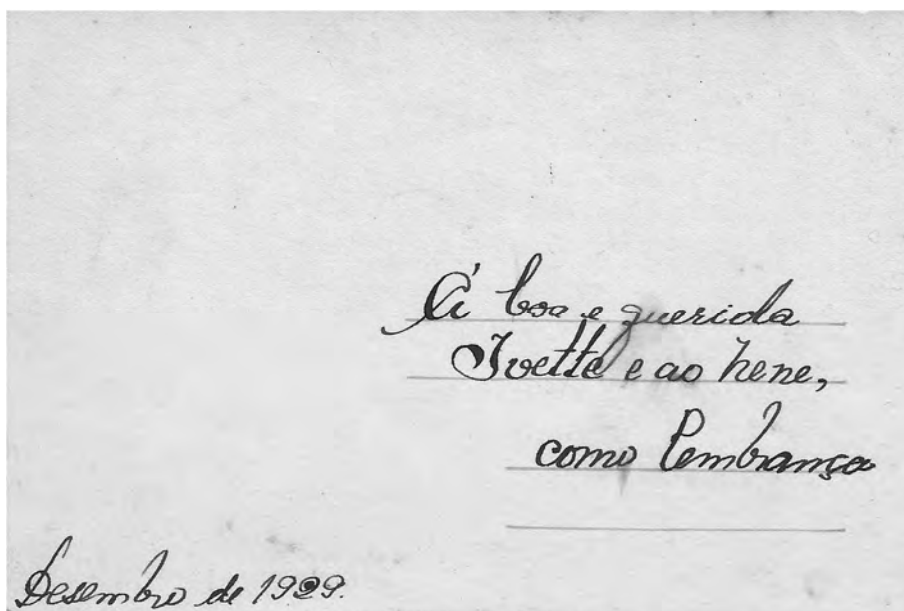 Á boa e querida
Ivette e ao nene,
como lembrança
Desembro de 1929.